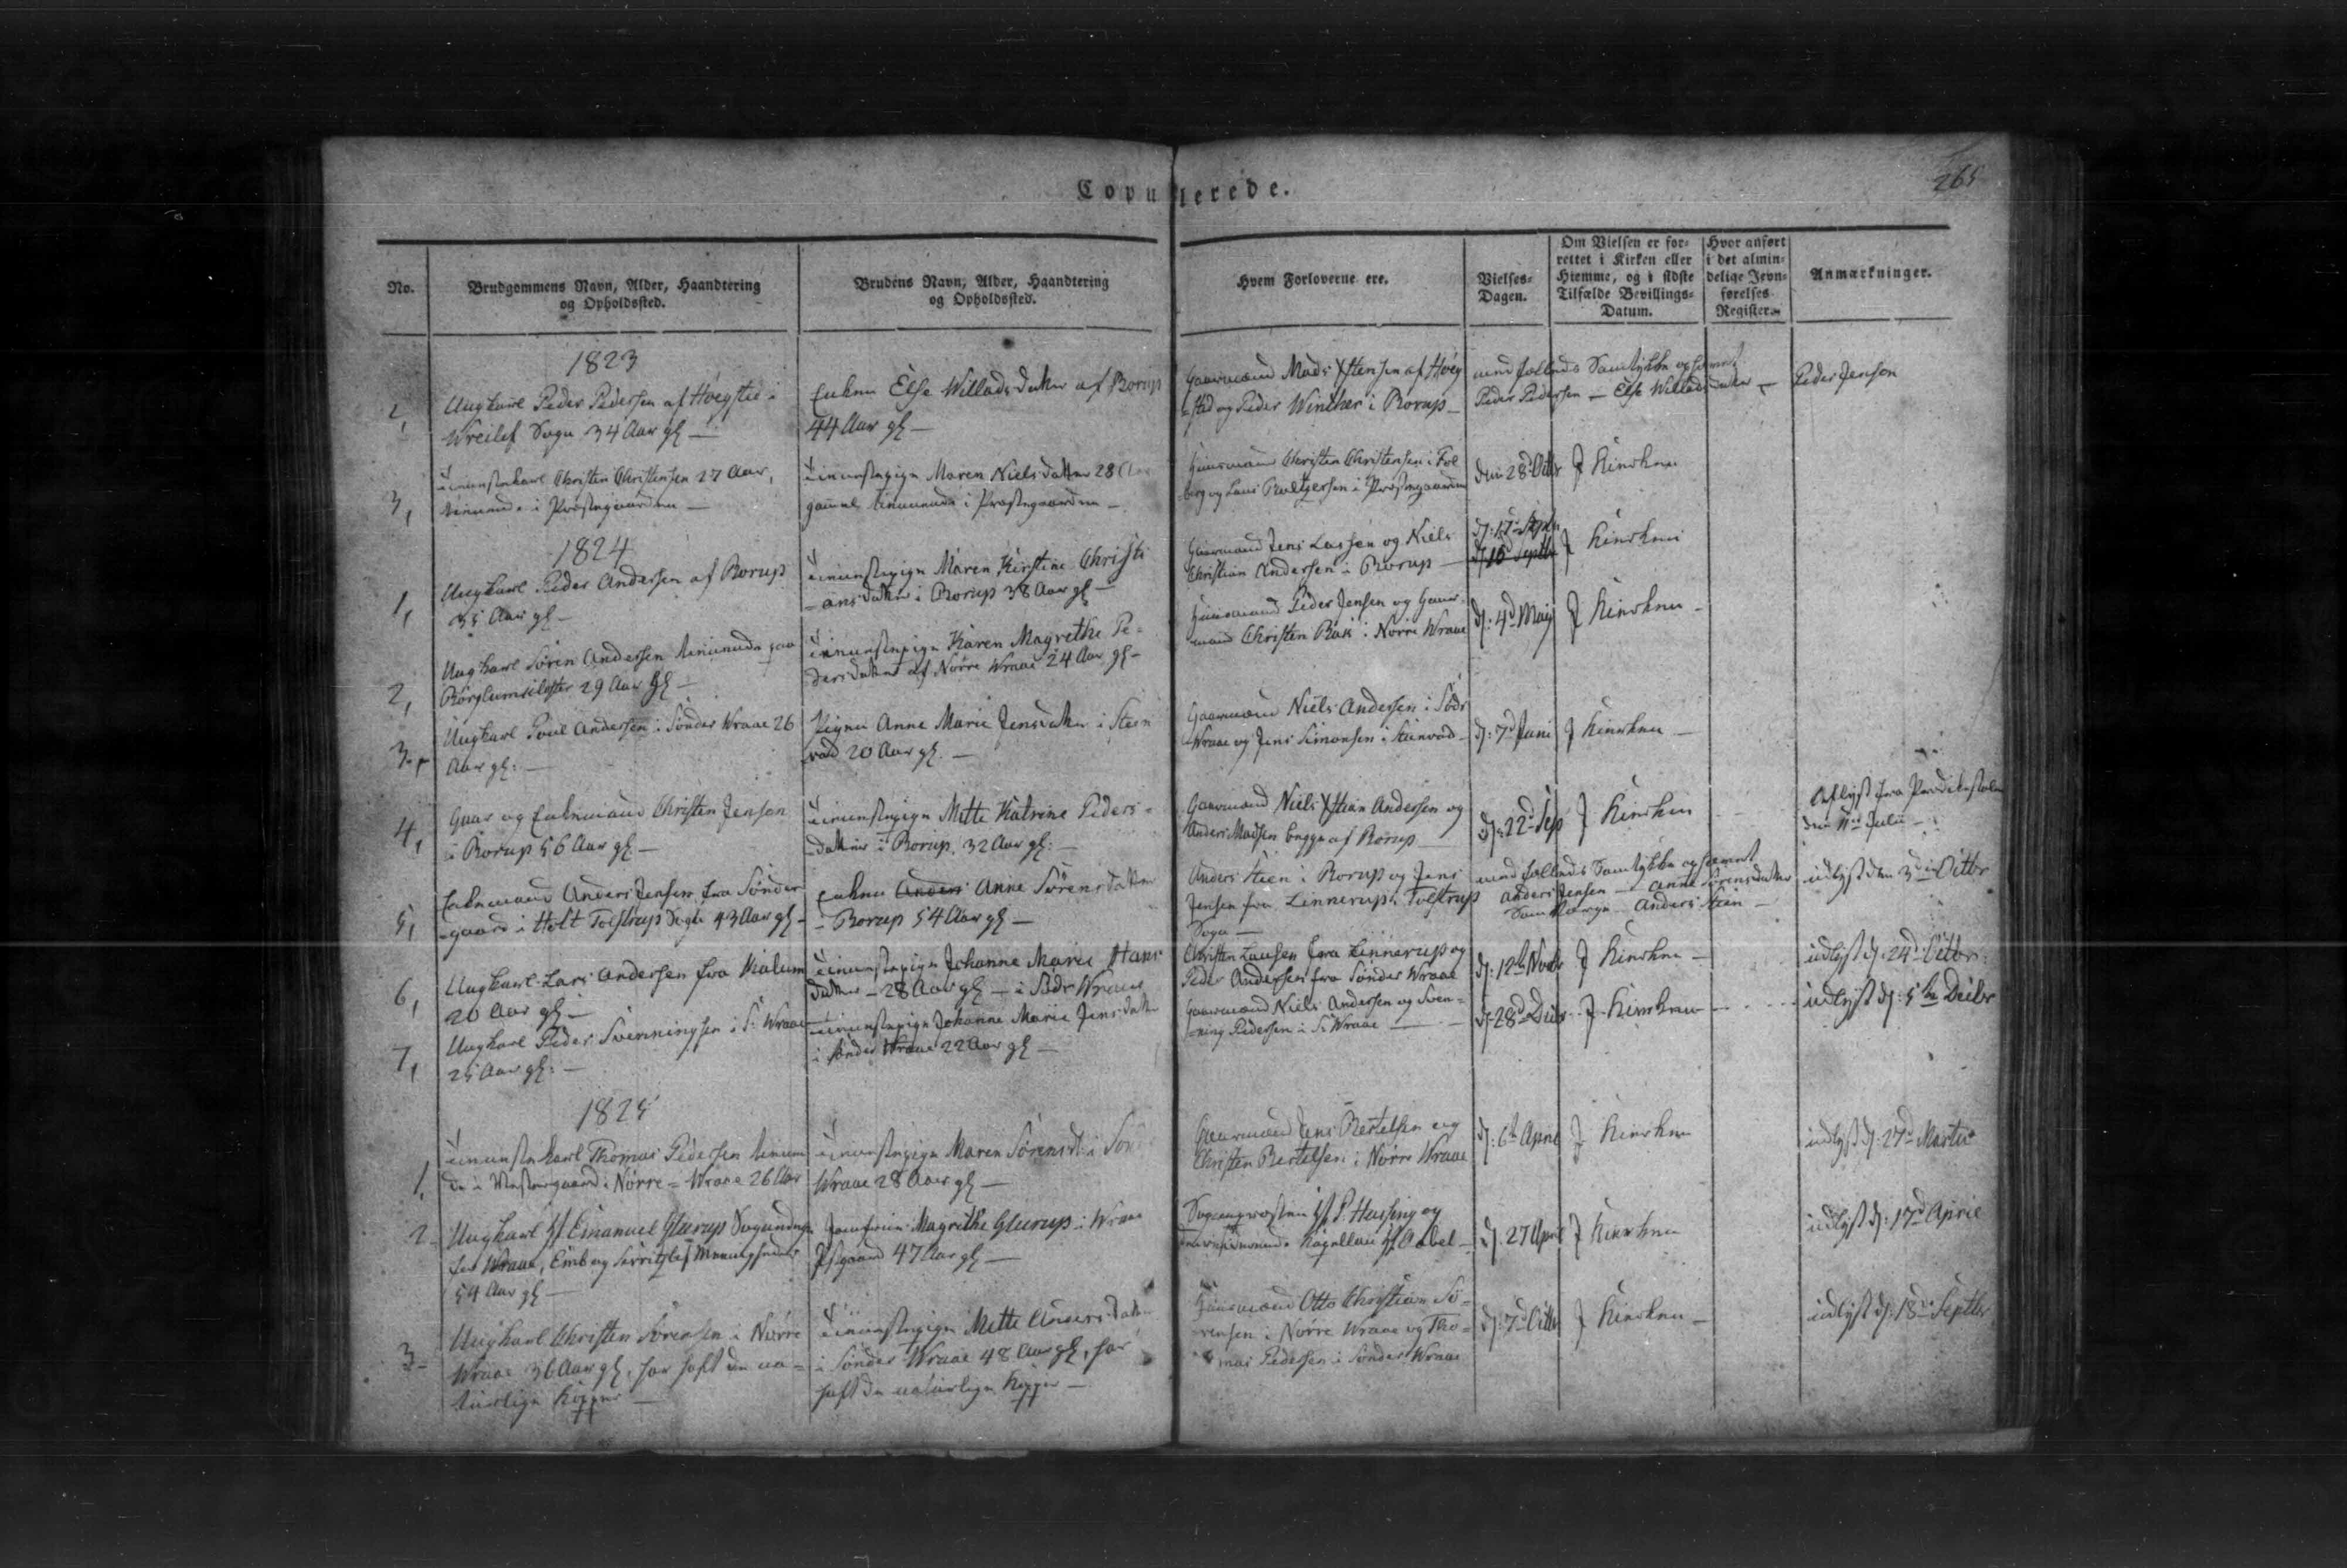 Copulerede.
265
No.
Brudgommens Navn, Alder, Haandtering
og Opholdssted.
Brudens Navn, Alder, Haandtering
og Opholdssted.
Hvem Forloverne ere.
Vielses-
Dagen.
Om Vielsen er for-
rettet i Kirken eller
Hiemme, og i sidste
Tilfælde Bevillings-
Datum.
Hvor anført
i det almin-
delige Jevn-
førelses
Register.
Anmærkninger.
1823
2,
Ungkarl Peder Pedersen af Høigsted i
Wreilef Sogn 34 Aar gl —
Enken Else Willadsdatter af Borup
44 Aar gl —
Gaarmand Mads Xstensen af Høig
-sted og Peder Winther i Borup —
med fælleds Samtykke ophævet
Peder Pedersen — Else Willadsdatter —
Peder Jensen
3,
Tienestekarl Christen Christensen 27 Aar,
tienende i Præstegaarden —
Tienestepige Maren Nielsdatter 28 Aar
gammel tienende i Præstegaarden —
Huusmand Christen Christensen i
og i Præstegaarden
den 28d Octbr
I Kirken
1824
1,
Ungkarl Peder Andersen af Borup
35 Aar gl —
Tienestepige Maren Kirstine Christi
-ansdatter i Borup 38 Aar gl —
Gaarmand Jens Lassen og Niels
Christian Andersen i Borup —
I Kirken
2,
Ungkarl Søren Andersen tienende paa
Børglumcloster 29 Aar gl —
Tienestepige Karen Magrethe Pe-
dersdatter af Nørre Wraae 24 Aar gl —
Huusmand Peder Jensen og Gaar-
mand Christen i Nørre Wraae
d: 4d Maij
I Kirken —
3,
Ungkarl Poul Andersen i Sønder Wraae 26
Aar gl: —
Pigen Anne Marie Jensdatter i Steen
vad 20 Aar gl. —
Gaarmand Niels Andersen i Sødr
Wraae og Jens Simonsen i Steenvad —
d: 7d Juni
I Kirken —
4,
Gaar og Enkemand Christen Jensen
i Borup 56 Aar gl —
Tienestepige Mette Katrine Peders-
datter i Borup. 32 Aar gl: —
Gaarmand Niels Xstian Andersen og
Anders Madsen begge af Borup
d: 22d Sep
I Kirken
Oplyst fra Prædikestolen
den Julii —
5,
Enkemand Anders Jensen fra Sønder
-gaard i Holt Tolstrup Sogn 43 Aar gl —
Enken Anne Sørensdatter
i Borup 54 Aar gl —
Anders Steen i Borup og Jens
Jensen fra Linnerup i Tolstrup
Sogn —
med fælleds Samtykke ophævet
Anders Jensen — Anne Sørensdatter
Anders Steen —
udlyst den 3die Octbr
6,
Ungkarl Lars Andersen fra
20 Aar gl —
Tienestepige Johanne Marie Hans
datter — 28 Aar gl — i Sødr Wraae
Christen fra Linnerup og
Peder Andersen fra Sønder Wraae
d: 12te Novbr
I Kirken —
udlyst d: 24d Octbr:
7,
Ungkarl Peder Svenningsen i S: Wraae
25 Aar gl: —
Tienestepige Johanne Marie Jensdatter
i Sønder Wraae 22 Aar gl —
Gaarmand Niels Andersen og Sven-
-ning Pedersen i S: Wraae —
d: 28d Decbr
I Kirken —
udlyst d: 5te Decbr
1825
1,
Tienestekarl Thomas Pedersen tienen
de i Westergaard i Nørre-Wraae 26 Aar
Tienestepige Maren Sørensd: i
Wraae 28 Aar gl —
Gaarmand Jens Bertelsen og
Christen Bertelsen i Nørre Wraae
d: 6te April
I Kirken
udlyst d: 27d Martii
2-
Ungkarl H Emanuel Glerup Sognedegn
for Wraae, Emb og Serritslef Menigheder
54 Aar gl —
Jomfrue Magrethe Glerup i Wraae
47 Aar gl —
Sogneprest H P. Hassing og
H Aabel —
d. 27 April
I Kirken
udlyst d: 17d Aprie
3-
Ungkarl Christen Sørensen i Nørre
Wraae 36 Aar gl, har haft de na-
turlige Kopper —
Tienestepige Mette Andersdatter
i Sønder Wraae 48 Aar gl, har
haft de naturlige Kopper —
Huusmand Otto Christian Sø-
rensen i Nørre Wraae og Tho-
mas Pedersen i Sønder Wraae
d: 7d Octbr
I Kirken —
udlyst d: 18de Septbr